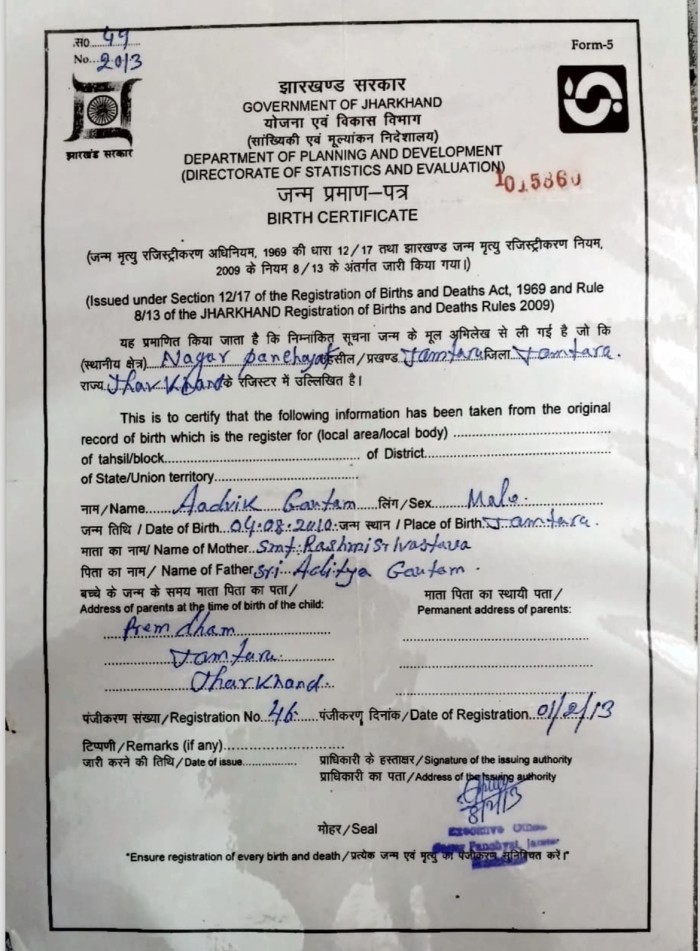 स०....49
No...2013
Form-5
झारखंड सरकार
झारखण्ड सरकार
GOVERNMENT OF JHARKHAND
योजना एवं विकास विभाग
(सांख्यिकी एवं मूल्यांकन निदेशालय)
DEPARTMENT OF PLANNING AND DEVELOPMENT
(DIRECTORATE OF STATISTICS AND EVALUATION)
1015860
जन्म प्रमाण-पत्र
BIRTH CERTIFICATE
(जन्म मृत्यु रजिस्ट्रीकरण अधिनियम, 1969 की धारा 12/17 तथा झारखण्ड जन्म मृत्यु रजिस्ट्रीकरण नियम,
2009 के नियम 8/13 के अंतर्गत जारी किया गया।)
(Issued under Section 12/17 of the Registration of Births and Deaths Act, 1969 and Rule
8/13 of the JHARKHAND Registration of Births and Deaths Rules 2009)
यह प्रमाणित किया जाता है कि निम्नांकित सूचना जन्म के मूल अभिलेख से ली गई है जो कि
(स्थानीय क्षेत्र) Nagar Panchayat तहसील/प्रखण्ड Jamtara जिला Jamtara.
राज्य Jharkhand के रजिस्टर में उल्लिखित है।
This is to certify that the following information has been taken from the original
record of birth which is the register for (local area/local body)
of tahsil/block of District
of State/Union territory
नाम/Name Aadvik Gautam लिंग/Sex Male.
जन्म तिथि / Date of Birth 04.08.2010 जन्म स्थान / Place of Birth Jamtara.
माता का नाम/ Name of Mother Smt. Rashmi Srivastava
पिता का नाम/ Name of Father Sri Aditya Gautam.
बच्चे के जन्म के समय माता पिता का पता/ माता पिता का स्थायी पता/
Address of parents at the time of birth of the child: Permanent address of parents:
Prem dham
Jamtara.
Jharkhand.
पंजीकरण संख्या/Registration No. 46 पंजीकरण दिनांक/Date of Registration 01/2/13
टिप्पणी/Remarks (if any)
जारी करने की तिथि/Date of issue प्राधिकारी के हस्ताक्षर/Signature of the issuing authority
प्राधिकारी का पता/Address of the issuing authority
मोहर/Seal
Nagar Panchyat, Jamtara
"Ensure registration of every birth and death/प्रत्येक जन्म एवं मृत्यु का पंजीकरण सुनिश्चित करें।"